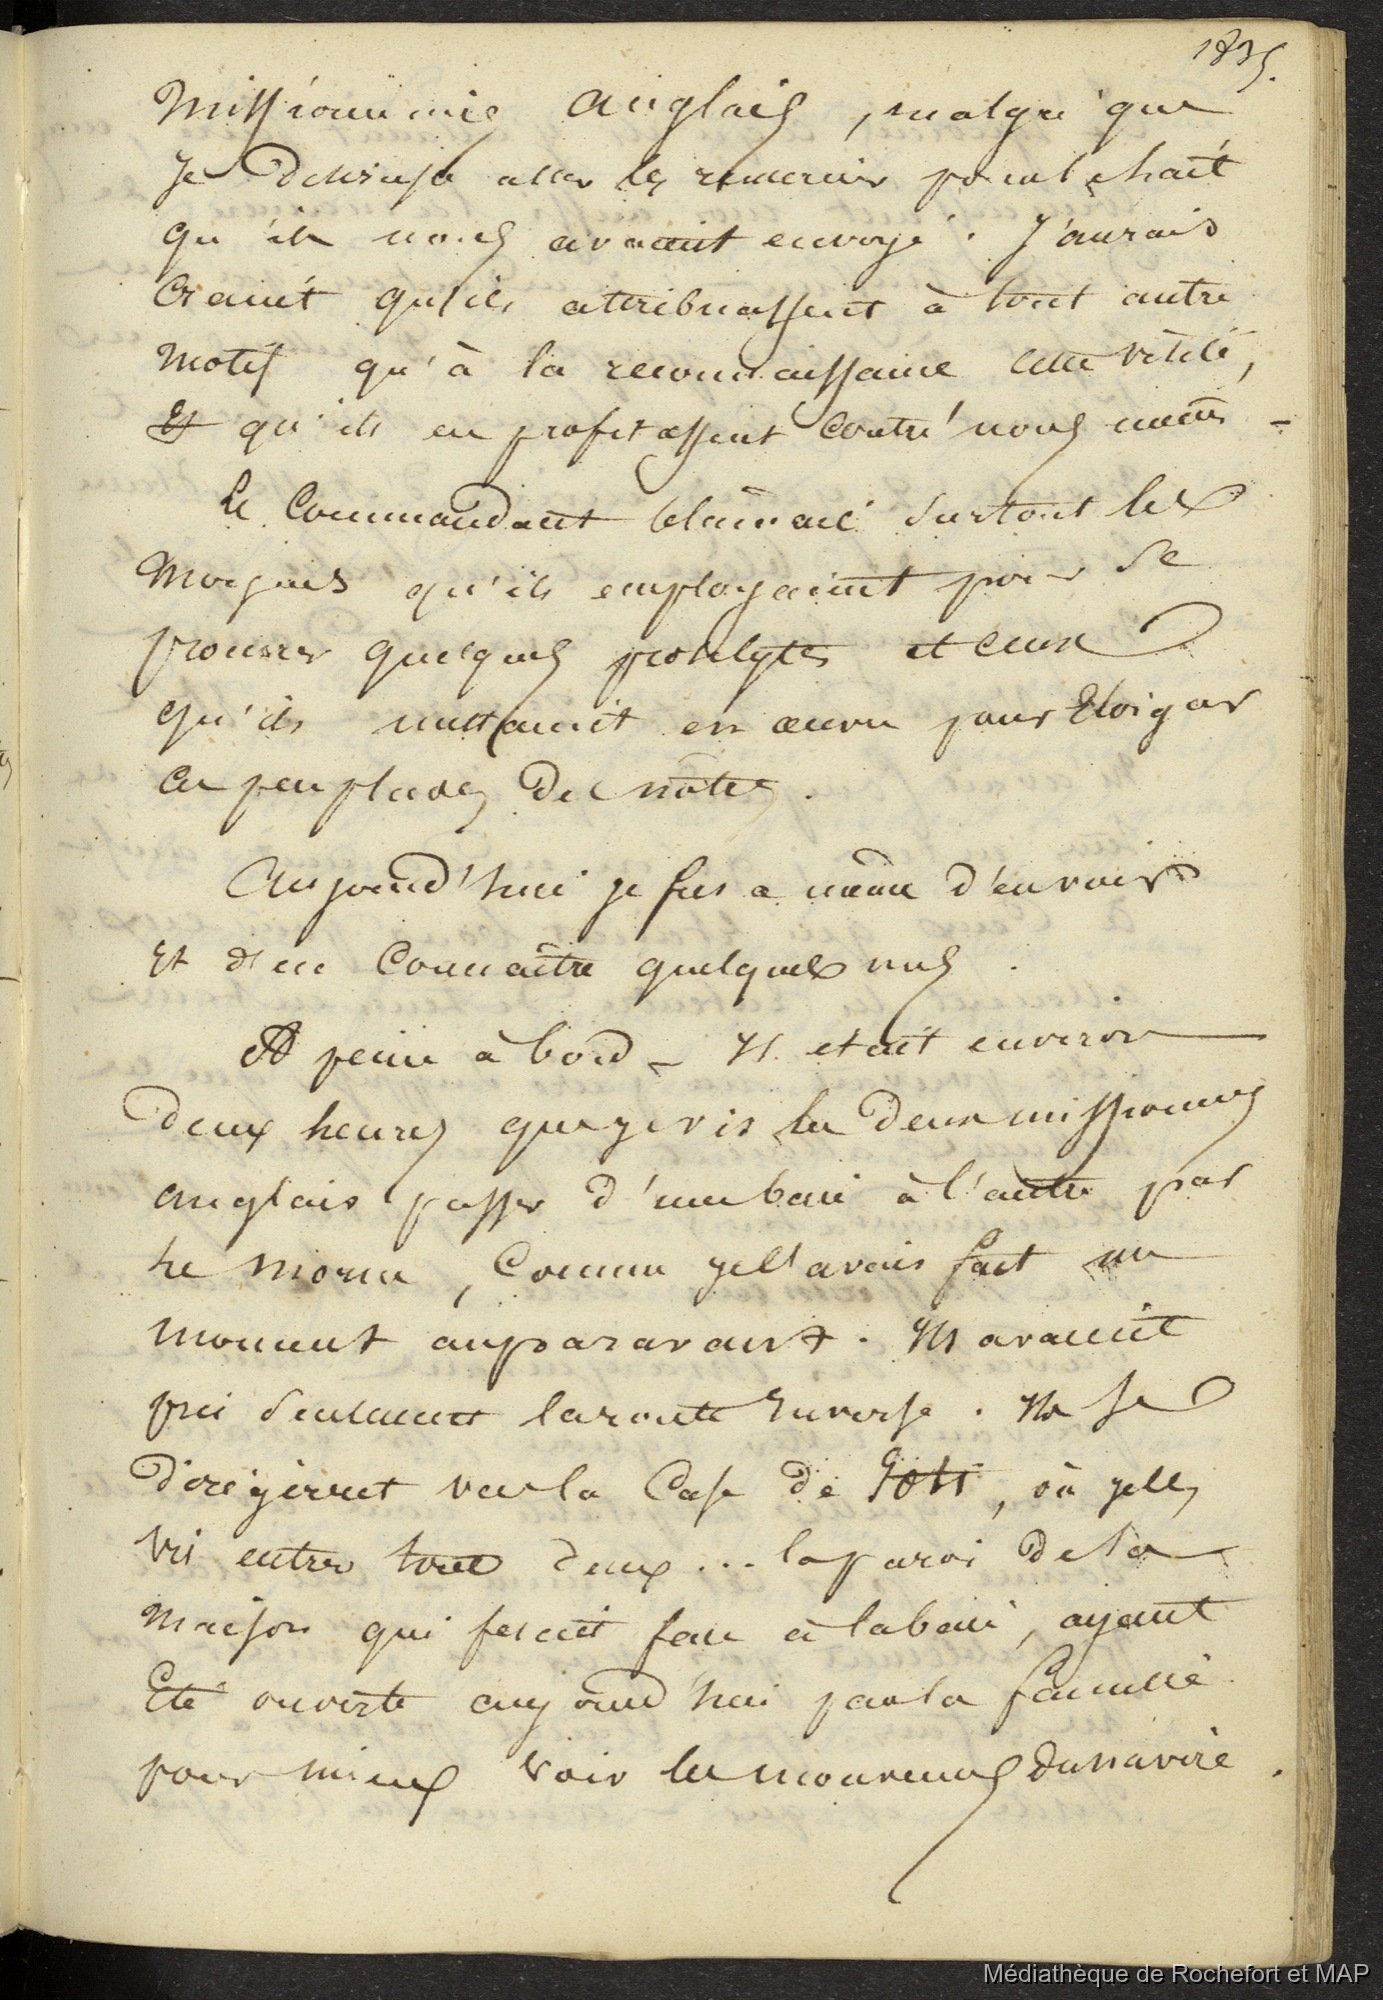 1835.
Missionnaires anglais, malgré que
Je désirasse aller les remercier pour l'achat
qu'ils nous avaient envoyé. J'aurais
Craint qu'ils attribuassent à tout autre
Motif qu'à la reconnaissance cette visite,
Et qu'ils en profitassent contre nous mêmes -
Le Commandant blâmait surtout les
Moyens qu'ils employaient pour se
procurer quelques prosélytes et ceux
qu'ils mettaient en œuvre pour Eloigner
Ces peuplades des nôtres.
Aujourd'hui je fus a même d'en voir
Et d'en Connaître quelques uns.
A peine à bord - Il etait environ
Deux heures que je vis les Deux missionnaires
anglais passer d'une baie à l'autre par
Le Morne, Comme je l'avais fait un
Moment auparavant. Ils avaient
pris seulement la route Inverse. Ils se
Dirigèrent vers la Case de , où je les
Vis entrer tous deux... la paroi De la
Maison qui fesait face à la baie, ayant
Eté ouverte aujourd'hui par la famille
pour mieux Voir les mouvemens Du navire.
Médiathèque de Rochefort et MAP